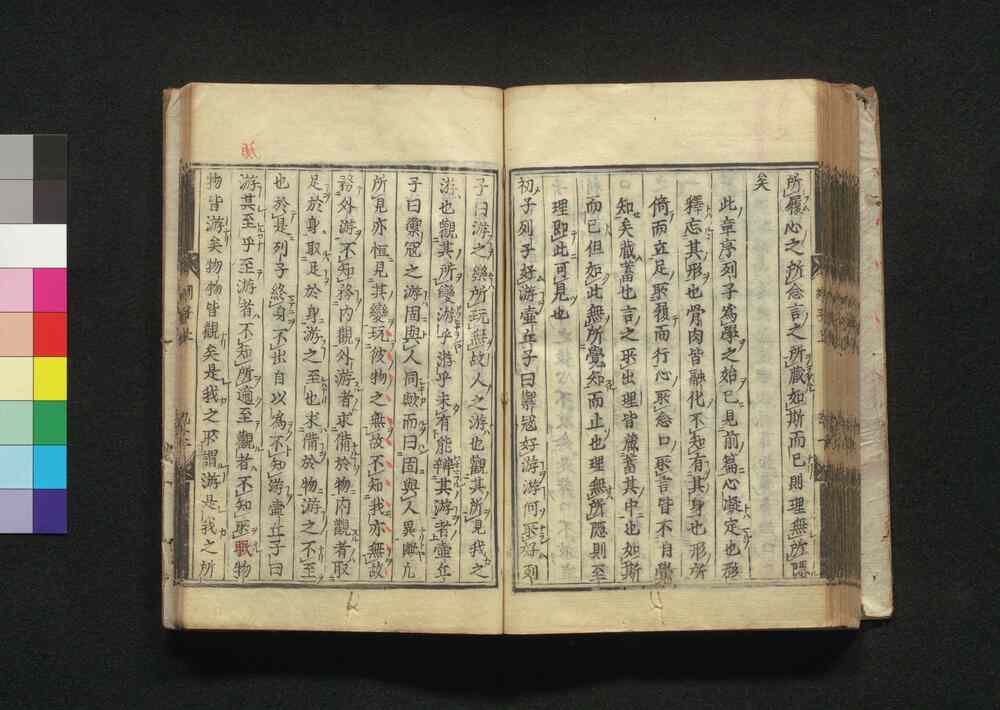 所履心之所念言之所藏如斯而已則理無所隱
矣
此章序列子爲學之始已見前篇心凝定也形
釋忘其形也骨肉皆融化不知有其身也形所
倚而立足所履而行心所念口所言皆不自覺
知矣藏蓄也言之所出理皆藏蓄其中也如斯
而已但如此無所覺知而止也理無所隱則至
理即此可見也
初子列子好游壺丘子曰禦冦好游游何所好列
子曰游之樂所玩無故人之游也觀其所見我之
游也觀其所變游乎游乎未有能辨其游者壺丘
子曰禦冦之游固與人同歟而曰固與人異歟凡
所見亦恒見其變玩彼物之無故不知我亦無故
務外游不知務内觀外游者求備於物内觀者取
足於身取足於身游之至也求備於物游之不至
也於是列子終身不出自以爲不知游壺丘子曰
游其至乎至游者不知所適至觀者不知所眂物
物皆游矣物物皆觀矣是我之所謂游是我之所